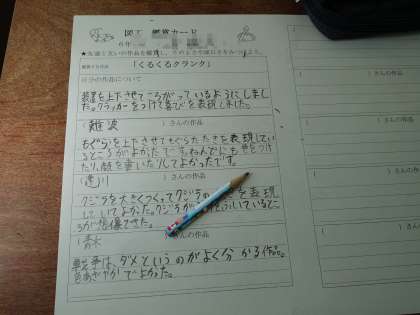 図工 鑑賞カード
6年
★友達と互いの作品を鑑賞し、
「くるくるクランク」
自分の作品について
装置を上下させてころがっているようにしまし
た。クラッカーをつけて喜びを表現しました。
(難波 )さんの作品
もぐらを上下させてもぐらたたきを表現してい
るところがよかったです。ねんどにも色をつけ
たり、顔を書いたりしてよかったです。
(逢川 )さんの作品
クジラを大きくつくってクジラの を表現
していてよかった。クジラが ているとこ
ろが想像できた。
(清水 )さんの作品
戦争は、ダメというのがよく分かる作品。
色あざやかでよかった。
( )さんの作品
( )さんの作品
( )さんの作品
( )さんの作品